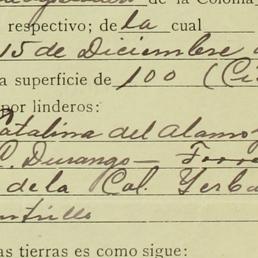 de la Colonia
respectivo; de la cual
15 de Diciembre
a superficie de 100 (Ci
por linderos:
atalina del Alamo
C. Durango— Torre
de la Col. Yerba
as tierras es como sigue: